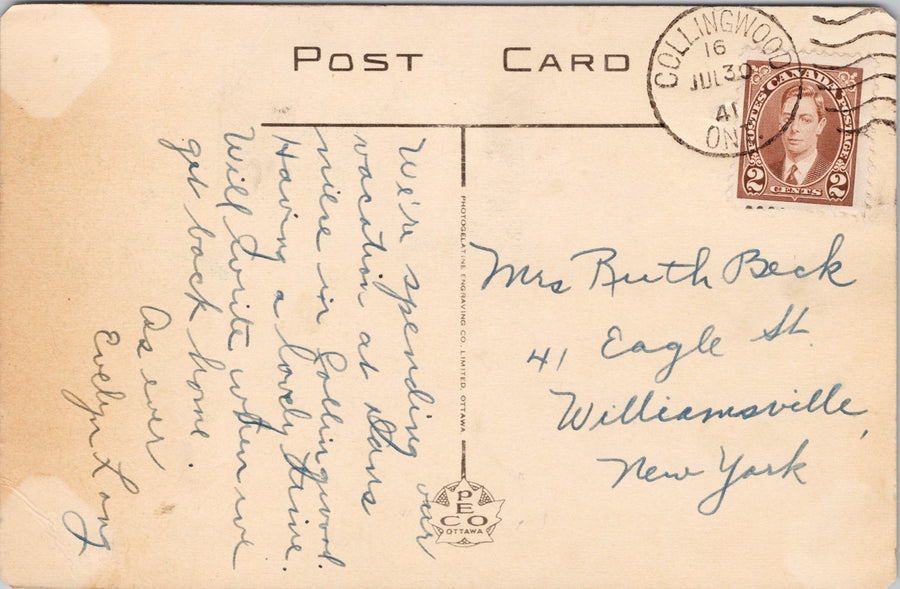 POST CARD
COLLINGWOOD
16
JUL 30
41
ONT.
POSTES CANADA POSTAGE
2 CENTS 2
We're spending our
vacation at Dan's
niece in Collingwood.
Having a lovely time.
Will write when we
get back home.
As ever
Evelyn Long
PHOTOGELATINE ENGRAVING CO. LIMITED, OTTAWA
PECO
OTTAWA
Mrs Ruth Beck
41 Eagle St.
Williamsville,
New York